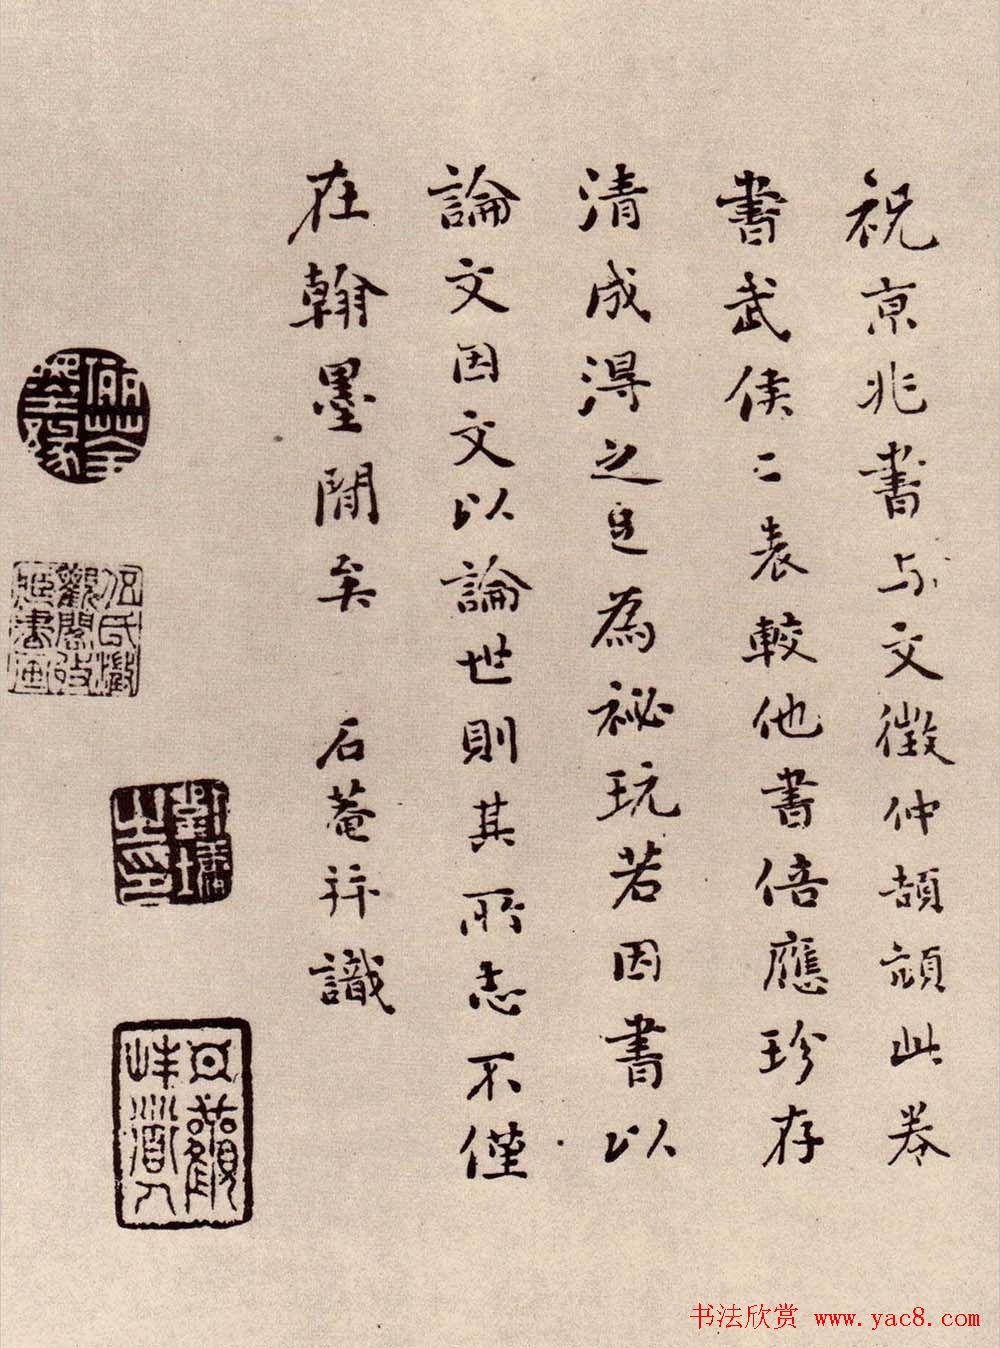 祝京兆書与文徵仲頡頏此卷
書武侯二表較他書倍應珍存
清成淂之足為祕玩若因書以
論文因文以論世則其所志不僅
在翰墨閒矣 石菴并識
劉墉之印
日觀峰道人
书法欣赏 www.yac8.com